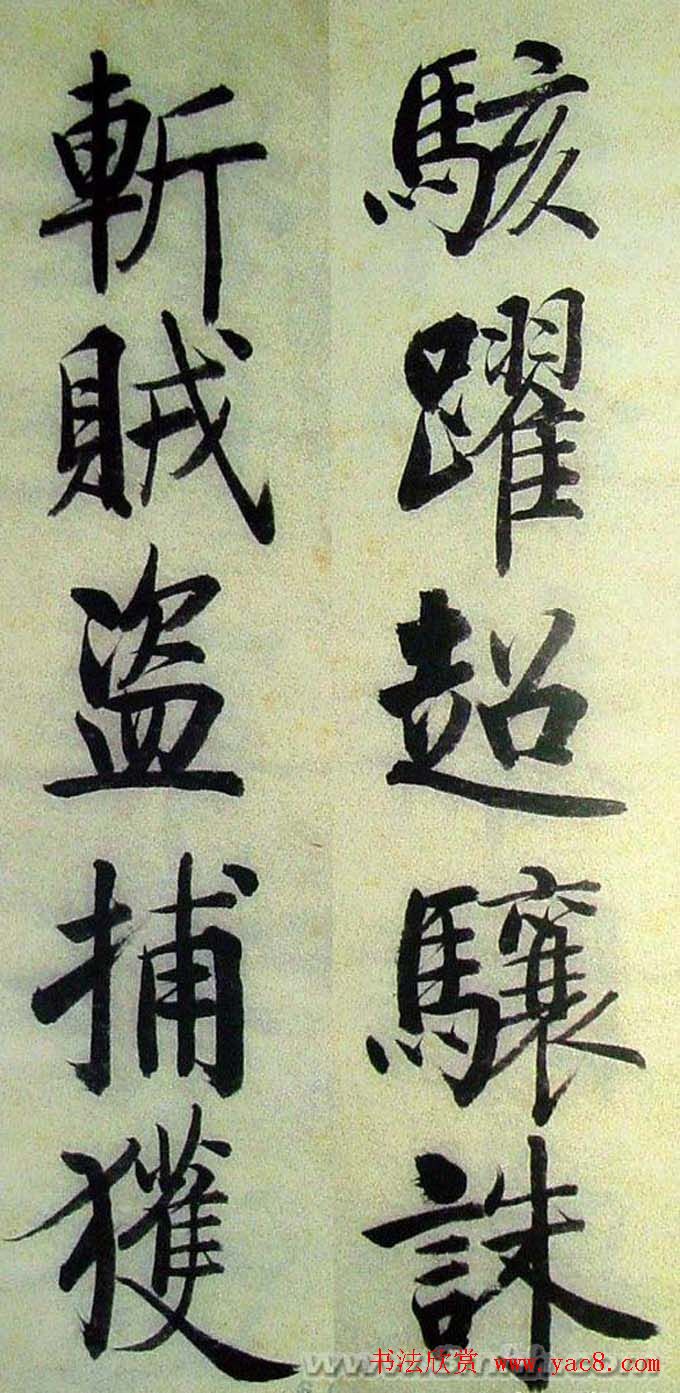 駭躍超驤誅
斬賊盗捕獲
书法欣赏 www.yac8.com